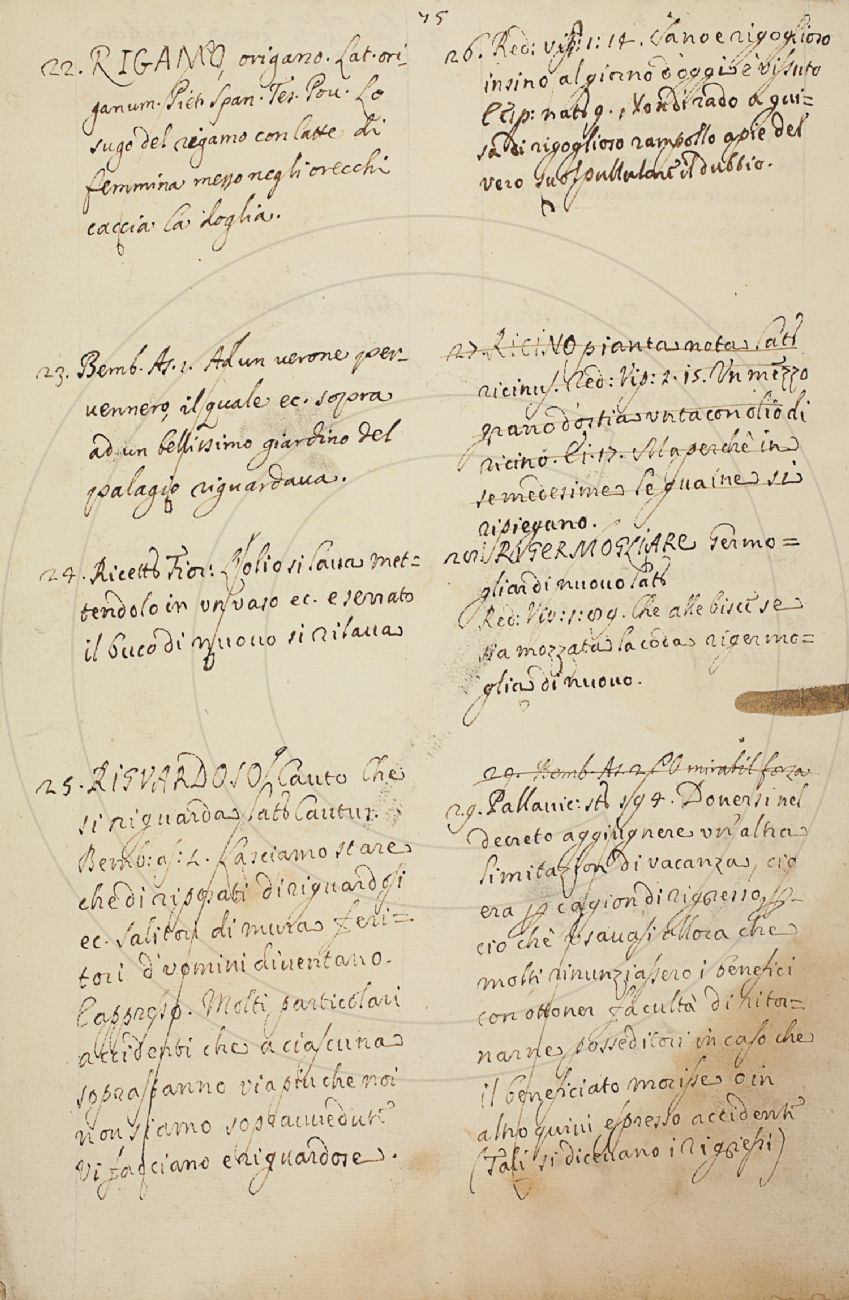 75
22. RIGAMO, origano. Lat. ori-
ganum. Piet. Span. Tes. Pov. Lo
sugo del rigamo con latte di
femmina messo negli orecchi
caccia la doglia.
23. Bemb. As. 1. Ad un verone per-
vennero, il quale ec. sopra
ad un bellissimo giardino del
palagio riguardava.
24. Ricett. Fior: L'olio si lava met-
tendolo in un vaso ec. e serrato
il buco di nuovo si rilava
25. RISGVARDOSO Cauto Che
si riguarda Cautus
Bemb: as: 2. Lasciamo stare
che di riposati di riguardosi
ec. salitori di mura feri-
tori d'vomini diventano.
E appresso. Molti particolari
accidenti che a ciascuna
soprastanno via piu che noi
non siamo sopravvedute
vi facciano e riguardose.
26. Red: vip: 1: 14. Sano e rigoglioso
insino al giorno d'oggi è vissuto
Esp: nat: 9. , Londi rado a gui-
sa di rigoglioso rampollo a piè del
vero suol pullulare il dubbio.
27. RICINO pianta nota Lat
ricinus. Red: Vip: 2. 15. Vn mezzo
grano d'ostia unta con olio di
ricino. E i. 17. Ma perchè in
se medesime le guaine si
ripiegano.
28. RIGERMOGLIARE Germo=
gliar di nuovo Lat
Red: Vip: 1: 89. Che alle biscie se
sia mozzata la coda rigermo=
glia di nuovo.
29. Bemb. As. 2. O mirabil forza
29. Pallavic: st: 594. Doversi nel
decreto aggiugnere un'altra
limitazion di vacanza, cio
era per cagion di rigresso, per-
ciò chè usavasi allora che
molti rinunziassero i benefici
con ottener facultà di ritor-
narne posseditori in caso che
il beneficiato morisse o in
altro quivi espresso accidente
(Tali si dicevano i rigressi)